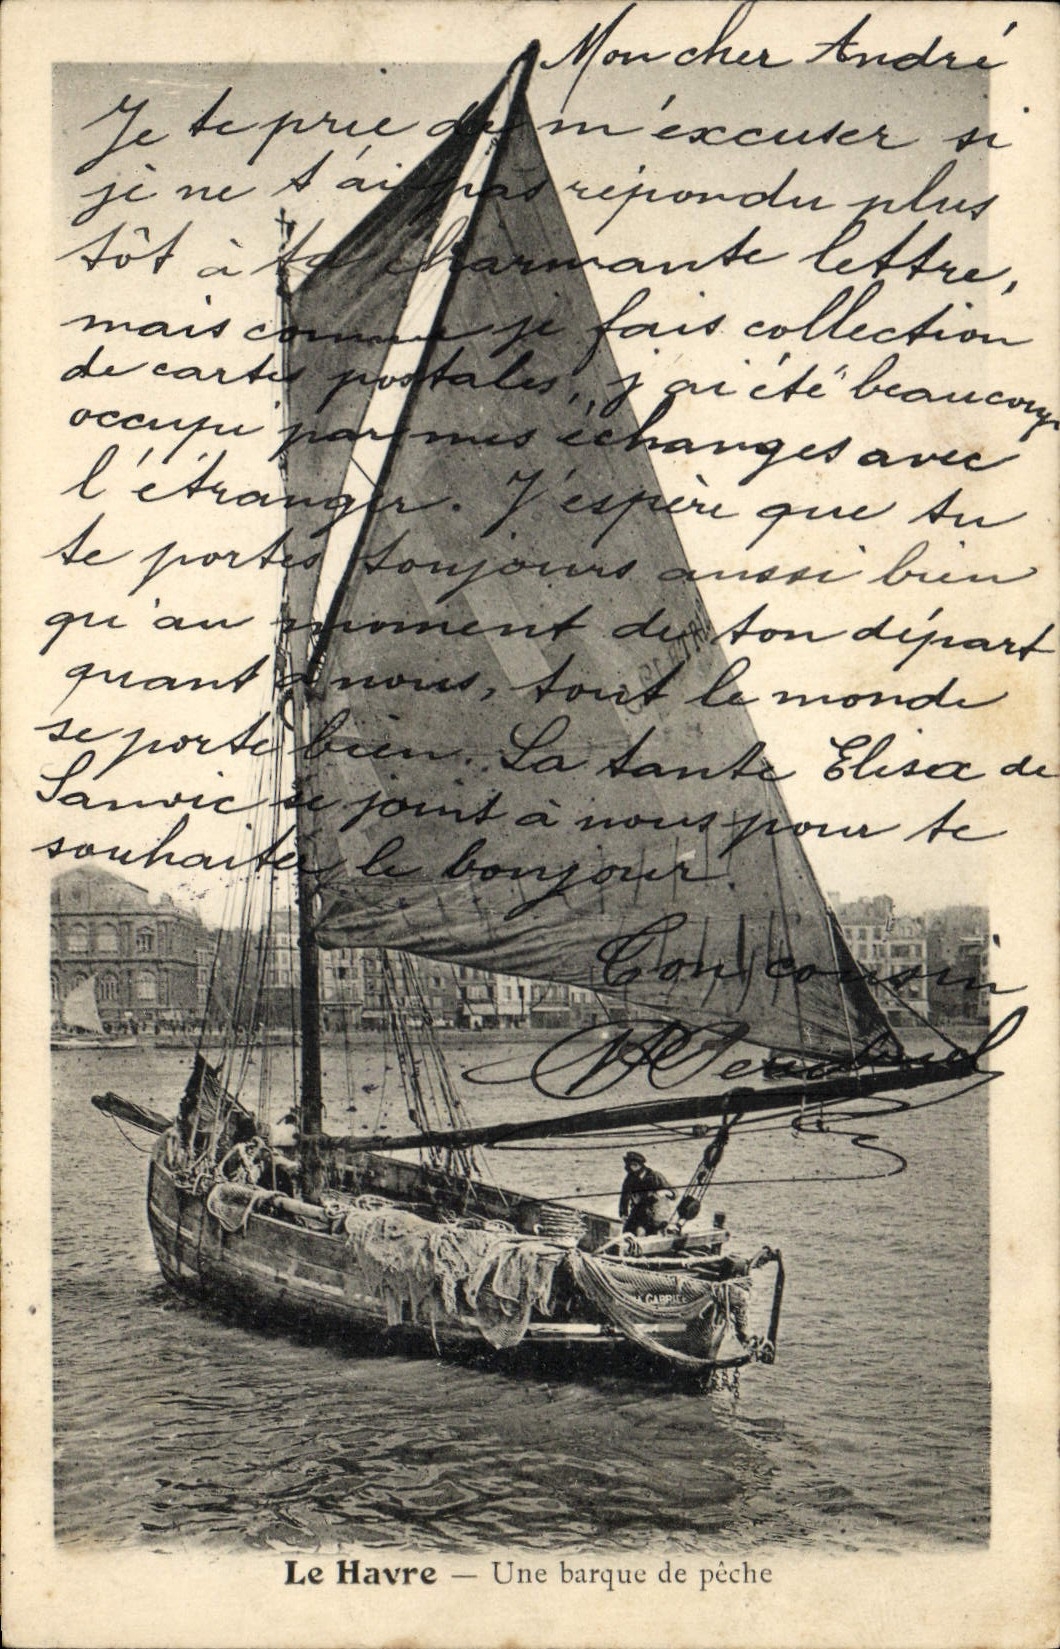 Mon cher André
Je te prie de m'excuser si
je ne t'ai pas répondu plus
tôt à ta charmante lettre,
mais comme je fais collection
de cartes postales, j'ai été beaucoup
occupé par mes échanges avec
l'étranger. J'espère que tu
te portes toujours aussi bien
qu'au moment de ton départ
quant à nous, tout le monde
se porte bien. La tante Elisa de
Sanvic se joint à nous pour te
souhaiter le bonjour.
Ton cousin
GABRIEL
Le Havre — Une barque de pêche